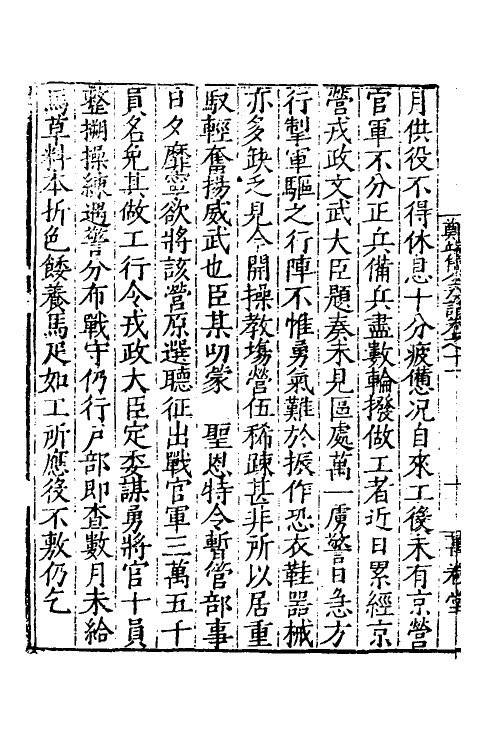 月供役不得休息十分疲憊况自來工後未有京營
官軍不分正兵備兵盡數輪撥做工者近日累經京
營戎政文武大臣題奏未見區處萬一虜警日急方
行掣軍驅之行陣不惟勇氣難於振作恐衣鞋器械
亦多缺乏見今開操教塲營伍稀踈甚非所以居重
馭輕奮揚威武也臣某叨蒙　聖恩特令暫管部事
日夕靡寧欲將該營原選聽征出戰官軍三萬五千
員名免其做工行令戎政大臣定委謀勇將官十員
整搠操練遇警分布戰守仍行戶部即查數月未給
馬草料本折色餧養馬疋如工所應後不敷仍乞
十
萬卷堂